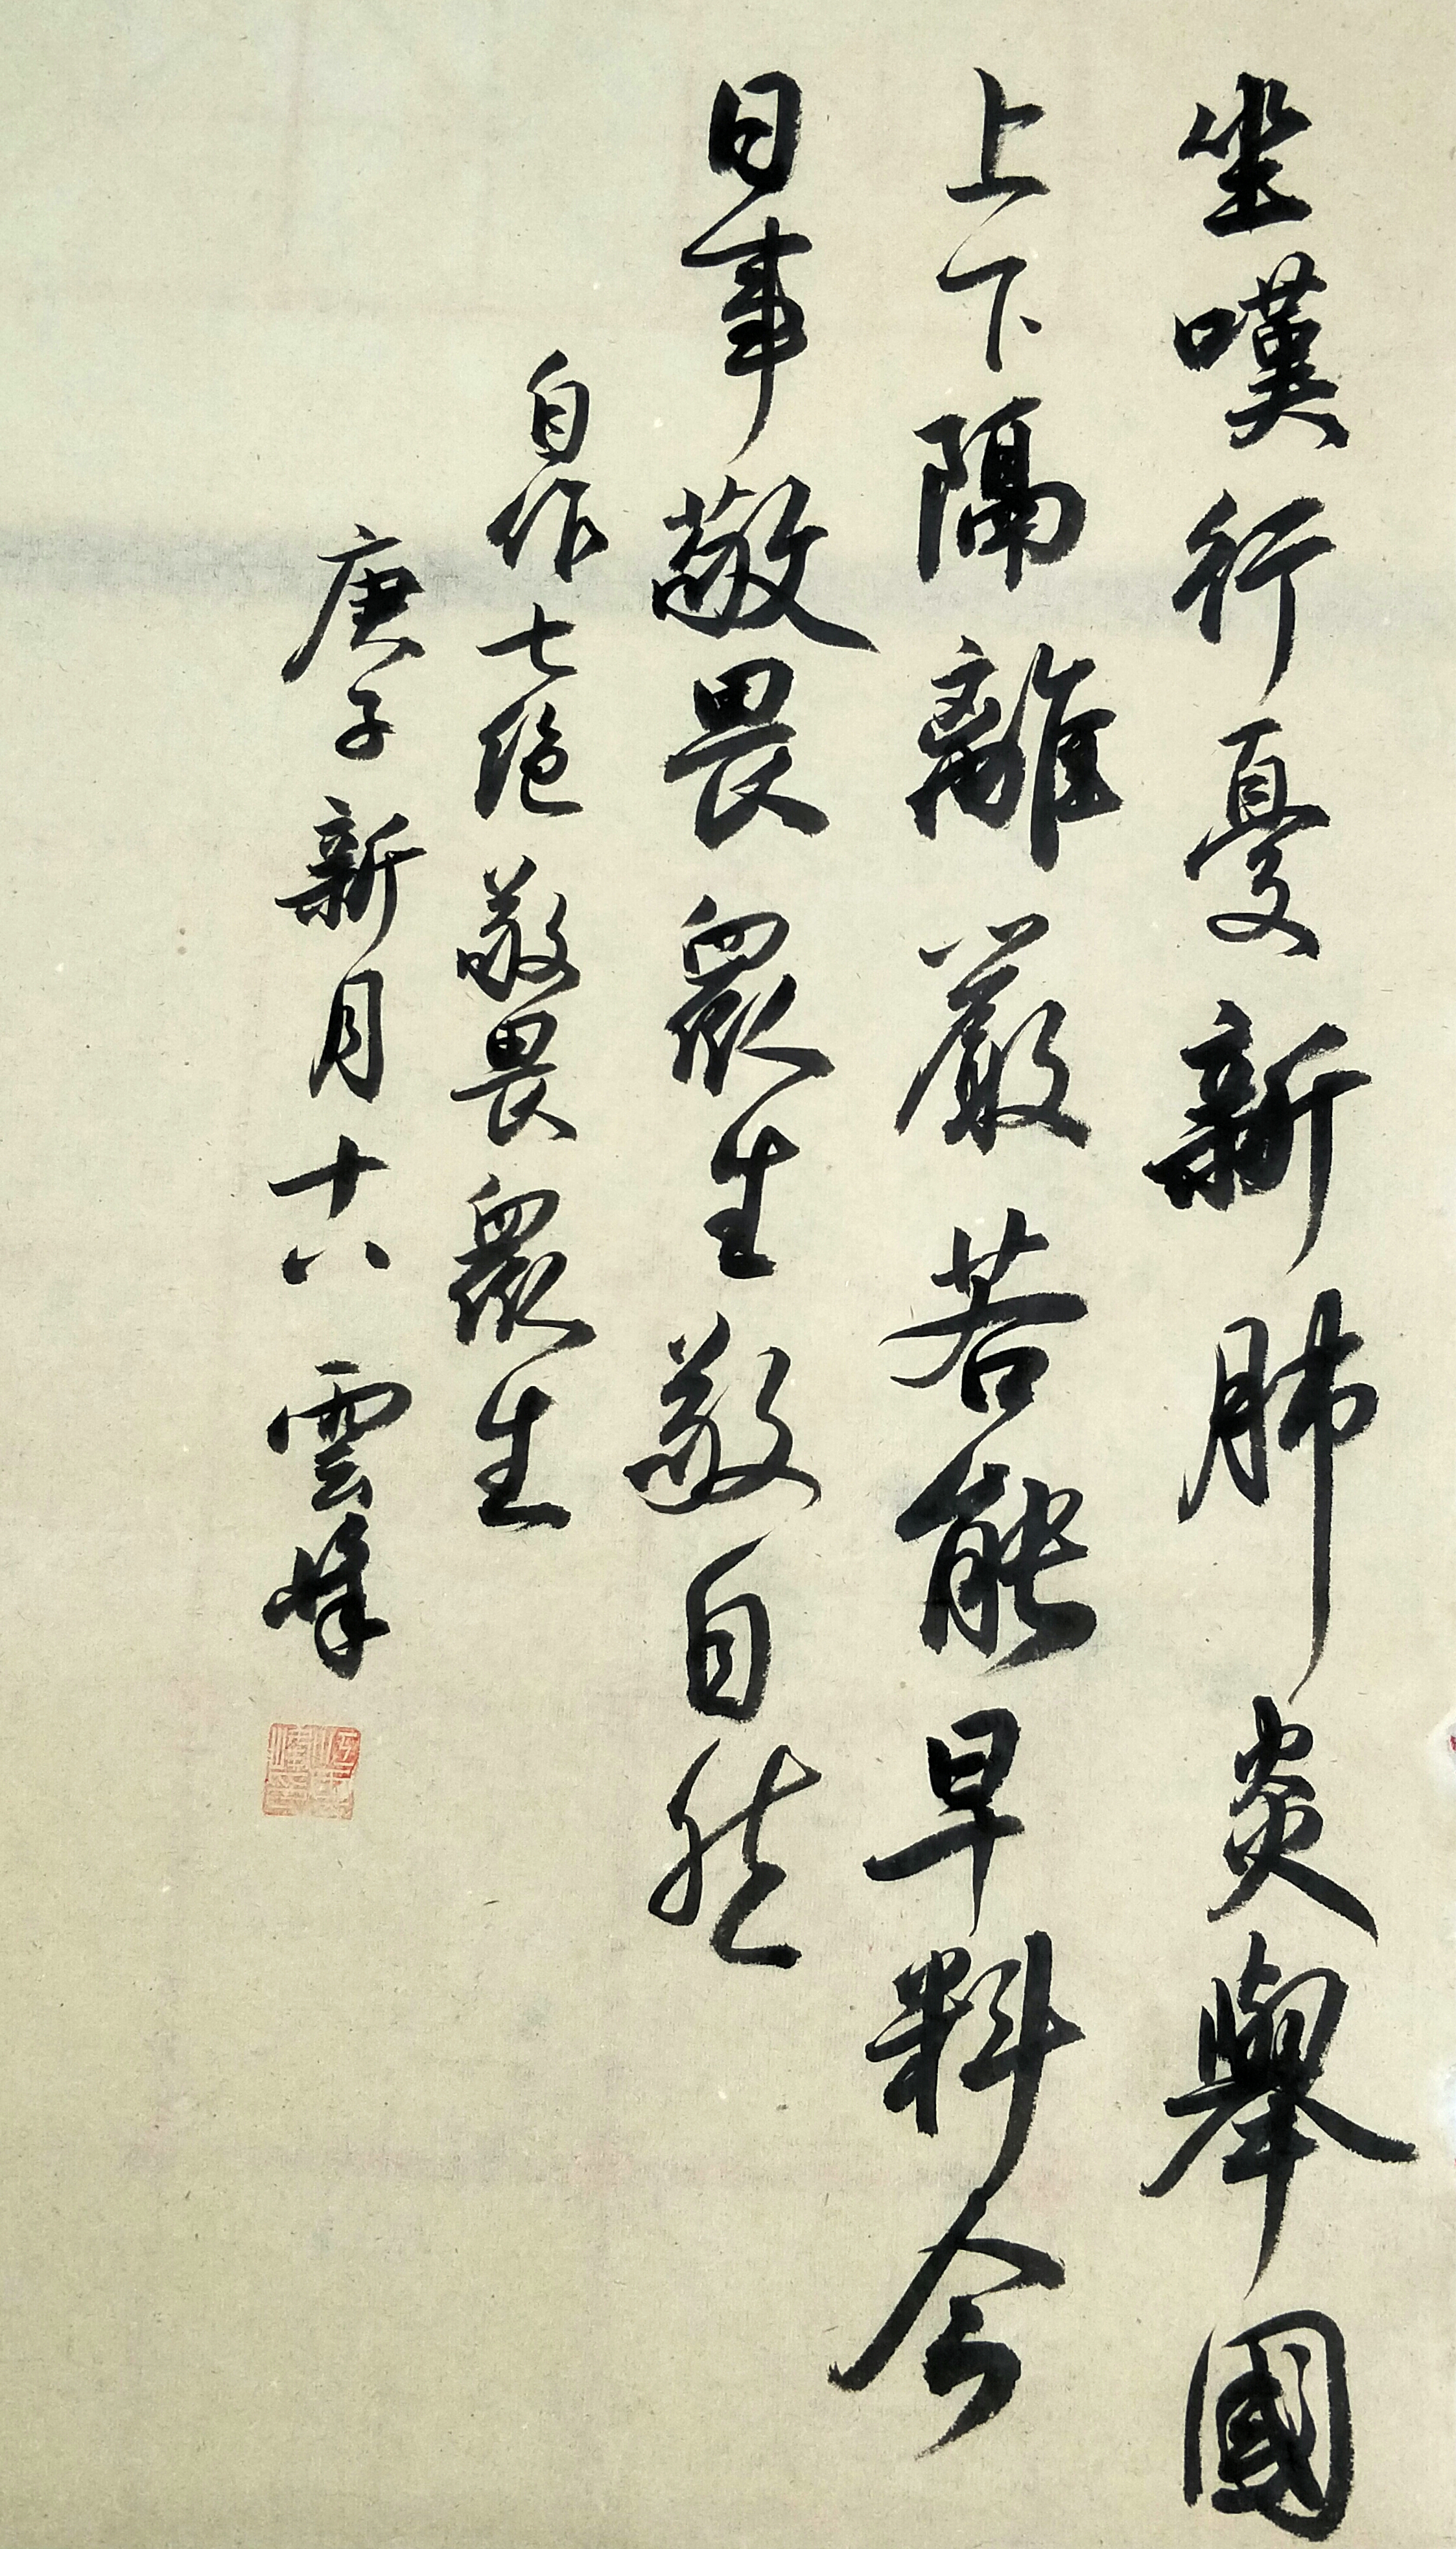 坐嘆行憂新肺炎舉國
上下隔離嚴若能早料今
日事敬畏眾生敬自然
自作七絕敬畏眾生
庚子新月十八雲峰